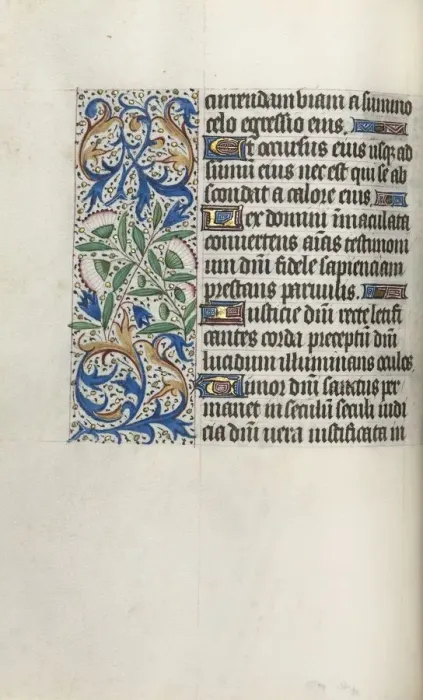 currendam viam a summo
celo egressio eius.
Et occursus eius usq; ad
summ eius nec est qui se ab
scondat a calore eius
Lex domini īmaculata
convertens aīas testimoni
um dnī fidele sapienciam
prestans parvulis.
Iusticie dnī recte letifi
cantes corda preceptū dnī
lucidum illuminans oculos
Timor dnī sanctus per
manet in seculū seculi iudi
cia dnī vera iustificata in